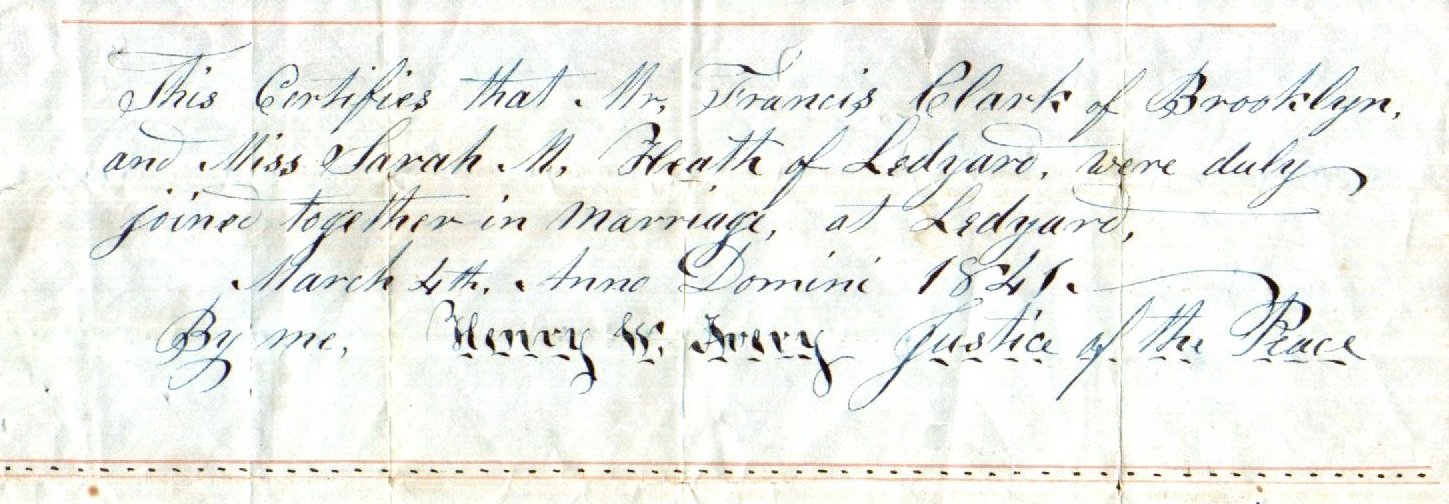 This Certifies that Mr. Francis Clark of Brooklyn,
and Miss Sarah M. Heath of Ledyard, were duly
joined together in marriage, at Ledyard,
March 4th. Anno Domini 1841.
By me, Henry W. Avery Justice of the Peace